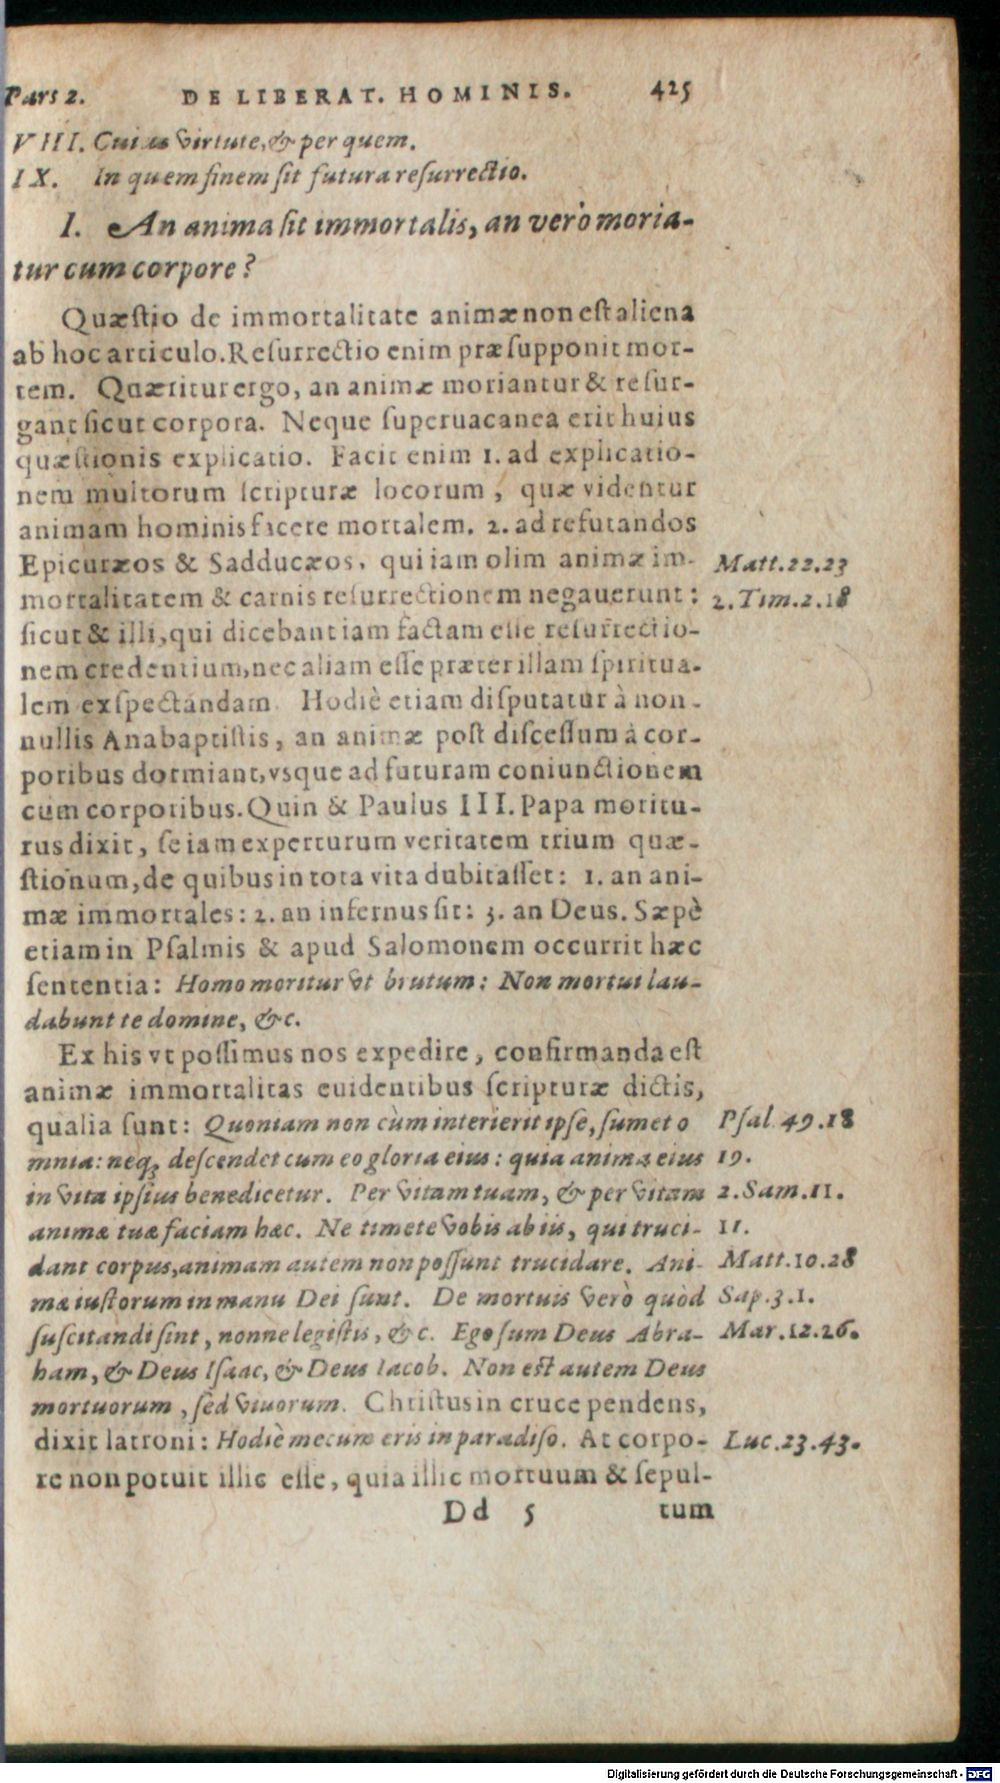 Pars 2. DE LIBERAT. HOMINIS. 425
VIII. Cuius virtute, & per quem.
IX. In quem finem sit futura resurrectio.
I. An anima sit immortalis, an verò moria-
tur cum corpore?
Quæstio de immortalitate animæ non est aliena
ab hoc articulo. Resurrectio enim præsupponit mor-
tem. Quæritur ergo, an animæ moriantur & resur-
gant sicut corpora. Neque superuacanea erit huius
quæstionis explicatio. Facit enim 1. ad explicatio-
nem multorum scripturæ locorum, quæ videntur
animam hominis facere mortalem. 2. ad refutandos
Epicuræos & Sadducæos, qui iam olim animæ im- Matt.22.23
mortalitatem & carnis resurrectionem negauerunt: 2.Tim.2.18
sicut & illi, qui dicebant iam factam esse resurrectio-
nem credentium, nec aliam esse præter illam spiritua-
lem exspectandam. Hodiè etiam disputatur à non-
nullis Anabaptistis, an animæ post discessum à cor-
poribus dormiant, vsque ad futuram coniunctionem
cum corporibus. Quin & Paulus III. Papa moritu-
rus dixit, se iam experturum veritatem trium quæ-
stionum, de quibus in tota vita dubitasset: 1. an ani-
mæ immortales: 2. an infernus sit: 3. an Deus. Sæpè
etiam in Psalmis & apud Salomonem occurrit hæc
sententia: Homo moritur vt brutum: Non mortui lau-
dabunt te domine, &c.
Ex his vt possimus nos expedire, confirmanda est
animæ immortalitas euidentibus scripturæ dictis,
qualia sunt: Quoniam non cùm interierit ipse, sumet o Psal.49.18
mnia: neq; descendet cum eo gloria eius: quia animæ eius 19.
in vita ipsius benedicetur. Per vitam tuam, & per vitam 2.Sam.11.
animæ tuæ faciam hæc. Ne timete vobis ab iis, qui truci- 11.
dant corpus, animam autem non possunt trucidare. Ani- Matt.10.28
mæ iustorum in manu Dei sunt. De mortuis verò quòd Sap.3.1.
suscitandi sint, nonne legistis, &c. Ego sum Deus Abra- Mar.12.26.
ham, & Deus Isaac, & Deus Iacob. Non est autem Deus
mortuorum, sed viuorum. Christus in cruce pendens,
dixit latroni: Hodiè mecum eris in paradiso. At corpo- Luc.23.43.
re non potuit illic esse, quia illic mortuum & sepul-
Dd 5 tum
Digitalisierung gefördert durch die Deutsche Forschungsgemeinschaft - DFG